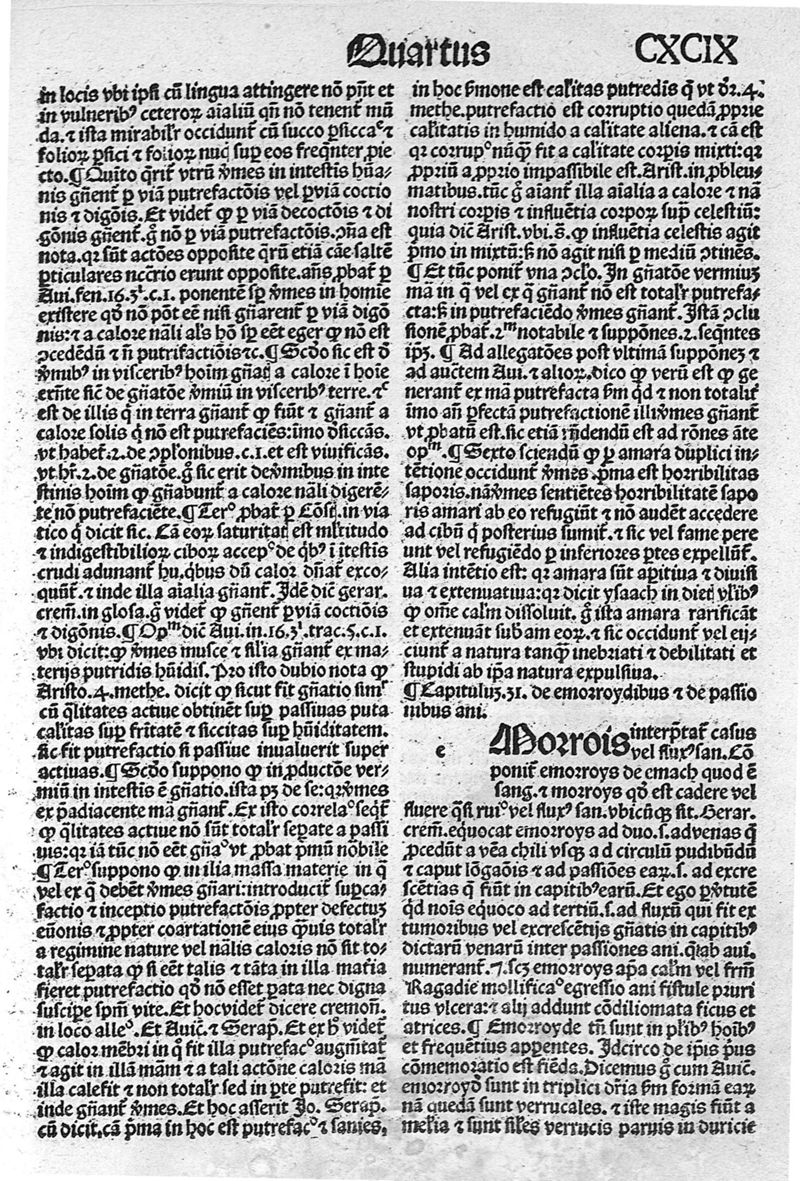 Quartus CXCIX
in locis vbi ipsi cū lingua attingere nō pn̄t et
in vulneribꝰ ceteroꝝ aīaliū qn̄ nō tenent̄ mū
da. ⁊ ista mirabilr̄ occidunt̄ cū succo ꝑsicca
folioꝝ ꝑsici ⁊ folioꝝ nuc̄ suꝑ eos freqn̄ter ꝓie
cto. ¶ Quīto q̄rit̄ vtrū v̄mes in intestis hūa⸗
nis gn̄ent̄ ꝑ viā putrefactōis vel ꝑ viā coctio
nis ⁊ digōis. Et videt̄ ꝙ ꝑ viā decoctōis ⁊ di
gōnis gn̄ent̄. g̊ nō ꝑ viā putrefactōis. ↄn̄a est
nota. qꝛ sūt actōes opposite qrū etiā cāe saltē
ꝑticulares nc̄crio erunt opposite. an̄s ꝓbat̄ ꝑ
Aui. fen. 16. 3ⁱ. c. 1. ponentē sꝑ v̄mes in homīe
existere qd̄ nō pōt eē nisi gn̄arent̄ ꝑ viā digō
nis: ⁊ a calore nāli al̓s hō sꝑ eēt eger ꝙ nō est
ↄcedēdū ⁊ n̄ putrifactiōis ⁊c. ¶ Scd̄o sic est d̄
v̄mibꝰ in visceribꝰ hoīm gn̄at̄ a calore ī hoīe
exn̄te sic̄ de gn̄atōe v̄miū in visceribꝰ terre. ⁊c̄
est de illis q̄ in terra gn̄ant̄ ꝙ fiūt ⁊ gn̄ant̄ a
calore solis q̄ nō est putrefaciēs: īmo d̄siccās.
vt habet̄. 2. de ↄplōnibus. c. 1. et est viuificās.
vt hr̄. 2. de gn̄atōe. g̊ sic erit de v̄mibus in inte
stinis hoīm ꝙ gn̄abunt̄ a calore nāli digerē⸗
te nō putrefaciēte. ¶ Terꝰ ꝓbat̄ ꝑ Cōst̄. in via
tico q̄ dicit sic. Cā eoꝝ saturitat̄ est ml̓titudo
⁊ indigestibilioꝝ ciboꝝ accepꝰ de qbꝰ ī ītestis
crudi adunant̄ hu. qbus dū calor dn̄at̄ exco⸗
qunt̄. ⁊ inde illa aīalia gn̄ant̄. Idē dic̄ gerar.
crem̄. in glosa. g̊ videt̄ ꝙ gn̄ent̄ ꝑ viā coctiōis
⁊ digōnis. ¶ Opᵐ. dic̄ Aui. in. 16. 3ⁱ. trac. 5. c. 1.
vbi dicit: ꝙ v̄mes musce ⁊ sil̓ia gn̄ant̄ ex ma⸗
terijs putridis hūidis. Pro isto dubio nota ꝙ
Aristo. 4. methe. dicit ꝙ sicut fit gn̄atio simꝰ
cū q̄litates actiue obtinēt suꝑ passiuas puta
cal̓itas suꝑ fr̄itatē ⁊ siccitas suꝑ hūiditatem.
sic fit putrefactio si passiue inualuerit super
actiuas. ¶ Scd̄o suppono ꝙ in ꝓductōe ver⸗
miū in intestis ē gn̄atio. ista pꝫ de se: qꝛ v̄mes
ex p̄adiacente mā gn̄ant̄. Ex isto correlaꝰ seqt̄
ꝙ q̄litates actiue nō sūt total̓r seꝑate a passi
uis: qꝛ iā tūc nō eēt gn̄aꝰ vt ꝓbat p̄mū nobile
¶ Terꝰ suppono ꝙ in illa massa materie in q̄
vel ex q̄ debēt v̄mes gn̄ari: introducit̄ suꝑca⸗
factio ⁊ inceptio putrefactōis ꝓpter defectuꝫ
euōnis ⁊ ꝓpter coartationē eius q̄uis total̓r
a regimine nature vel nālis caloris nō sit to⸗
tal̓r seꝑata ꝙ si eēt talis ⁊ tāta in illa mat̓ia
fieret putrefactio qd̄ nō esset ꝑata nec digna
suscipe sp̄m vite. Et hoc videt̄ dicere cremon̄.
in loco alleꝰ. Et Auic̄. ⁊ Seraꝑ. Et ex hꝰ videt̄
ꝙ calor mēbri in q̊ fit illa putrefacꝰ augm̄tat̄
⁊ agit in illā mām ⁊ a tali actōne caloris mā
illa calefit ⁊ non total̓r sed in ꝑte putrefit: et
inde gn̄ant̄ v̄mes. Et hoc asserit Jo. Seraꝑ.
cū dicit. cā p̄ma in hoc est putrefacꝰ ⁊ sanies,
in hoc ẜmone est cal̓itas putredis q̄ vt dr̄. 4.
methe. putrefactio est corruptio quedā ꝓprie
cal̓itatis in humido a cal̓itate aliena. ⁊ cā est
qꝛ corrupꝰ nūq̄ fit a cal̓itate corꝑis mixti: qꝛ
ꝓpriū a ꝓprio impassibile est. Arist. in ꝓbleu⸗
matibus. tūc g̊ aīant̄ illa aīalia a calore ⁊ nā
nostri corꝑis ⁊ influētia corpoꝝ suꝑ celestiū:
quia dic̄ Arist. vbi. s̄. ꝙ influētia celestis agit
p̄mo in mixtū: ẜ nō agit nisi ꝑ mediū ↄtinēs.
¶ Et tūc ponit̄ vna ↄcl̓o. In gn̄atōe vermiuꝫ
mā in q̄ vel ex q̄ gn̄ant̄ nō est total̓r putrefa⸗
cta: ẜ in putrefaciēdo v̄mes gn̄ant̄. Istā ↄclu
sionē ꝓbat̄. 2ᵐ notabile ⁊ suppōnes. 2. seqn̄tes
ip̄ꝫ. ¶ Ad allegatōes post vltimā supponeꝫ ⁊
ad auctem Aui. ⁊ alioꝝ. dico ꝙ verū est ꝙ ge
nerant̄ ex mā putrefacta ẜm qd̄ ⁊ non totalit̄
īmo an̄ ꝑfectā putrefactionē illi v̄mes gn̄ant̄
vt ꝓbatū est. sic etiā rn̄dendū est ad rōnes āte
opᵐ. ¶ Sexto sciendū ꝙ ꝑ amara duplici in⸗
tētione occidunt̄ v̄mes. p̄ma est horribilitas
saporis. nā v̄mes sentiētes horribilitatē sapo
ris amari ab eo refugiūt ⁊ nō audēt accedere
ad cibū q̄ posterius sumit̄. ⁊ sic vel fame pere
unt vel refugiēdo ꝑ inferiores ꝑtes expellunt̄.
Alia intētio est: qꝛ amara sūt aꝑitiua ⁊ diuisi
ua ⁊ extenuatiua: qꝛ dicit ysaach in diet̄ vl̓ibꝰ
ꝙ om̄e cal̓m dissoluit. g̊ ista amara rarificāt
et extenuāt sub̄am eoꝝ. ⁊ sic occidunt̄ vel eij⸗
ciunt̄ a natura tanq̄ inebriati ⁊ debilitati et
stupidi ab ip̄a natura expulsiua.
¶ Capituluꝫ. 31. de emorroydibus ⁊ de passio
nibus ani.
e Morrois interp̄tat̄ casus
vel fluxꝰ san. Cō
ponit̄ emorroys de emach quod ē
sang. ⁊ morroys qd̄ est cadere vel
fluere q̄si ruiꝰ vel fluxꝰ san. vbicūqꝫ sit. Gerar.
crem̄. equocat emorroys ad duo. s. ad venas q̄
ꝓcedūt a vēa chili vsqꝫ ad circulū pudibūdū
⁊ caput lōgaōis ⁊ ad passiōes eaꝝ. s. ad excre
scētias q̄ fiūt in capitibꝰ earū. Et ego ꝓ v̄tutē
qd̄ noīs equoco ad tertiū. s. ad fluxū qui fit ex
tumoribus vel excrescētijs gn̄atis in capitibꝰ
dictarū venarū inter passiones ani. q̄ ab aui.
numerant̄. 7. scꝫ emorroys ap̄a cal̓m vel fr̄m
Ragadie mollificaꝰ egressio ani fistule pruri
tus vlcera: ⁊ alij addunt cōdiliomata ficus et
atrices. ¶ Emorroyde tn̄ sunt in pl̓ibꝰ hoībꝰ
et frequētius apꝑentes. Idcirco de ip̄is p̄us
cōmemoratio est fiēda. Dicemus g̊ cum Auic̄.
emorroyd̄ sunt in triplici dr̄ia ẜm formā eaꝝ
nā quedā sunt verrucales. ⁊ iste magis fiunt a
mel̄ia ⁊ sunt sil̓es verrucis paruis in duricie